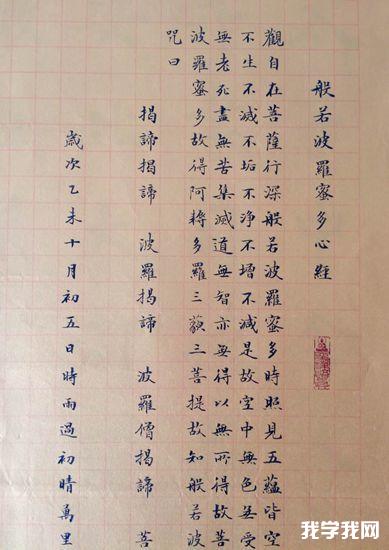 般若波羅蜜多心經
觀自在菩薩行深般若波羅蜜多時照見五蘊皆空
不生不滅不垢不净不增不減是故空中無色無受
無老死盡無苦集滅道無智亦無得以無所得故菩
波羅蜜多故得阿耨多羅三藐三菩提故知般若波
咒曰
揭諦揭諦 波羅揭諦 波羅僧揭諦 菩
歲次乙未十月初五日時雨過初晴萬里
我学我网